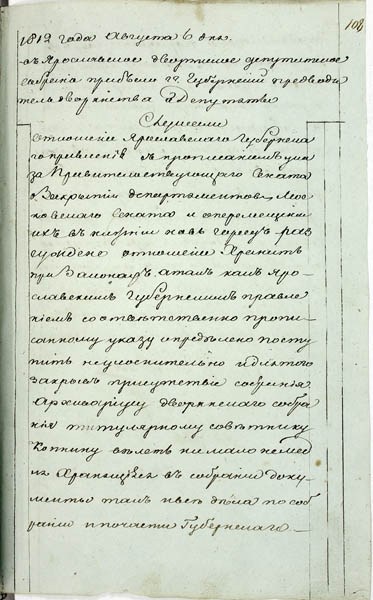 108
1812 года Августа 6 дня.
въ Ярославское дворянское депутатское
собрание прибыли гг. Губернский предводи
тель дворянства и Депутаты
Слушали
отношение Ярославскаго Губернска
го правления съ прописаниемъ ука
за Правительствующаго Сената
о Закрытии департаментовъ Мос
ковскаго Сената и о перемещении
ихъ въ городъ раз
суждено отношение Хранить
при а такъ какъ Яро-
славскимъ Губернскимъ правле
ниемъ соответственно пропи
санному указу определено посту
пить неупоснительно и для того
Закрывъ присутствие собрания
Архивариусу дворянскаго собра
ния титулярному советнику
велеть немало не мед
ля Хранящиеся въ собрании доку-
менты такъ и все дела по соб
ранию и по части Губернскаго